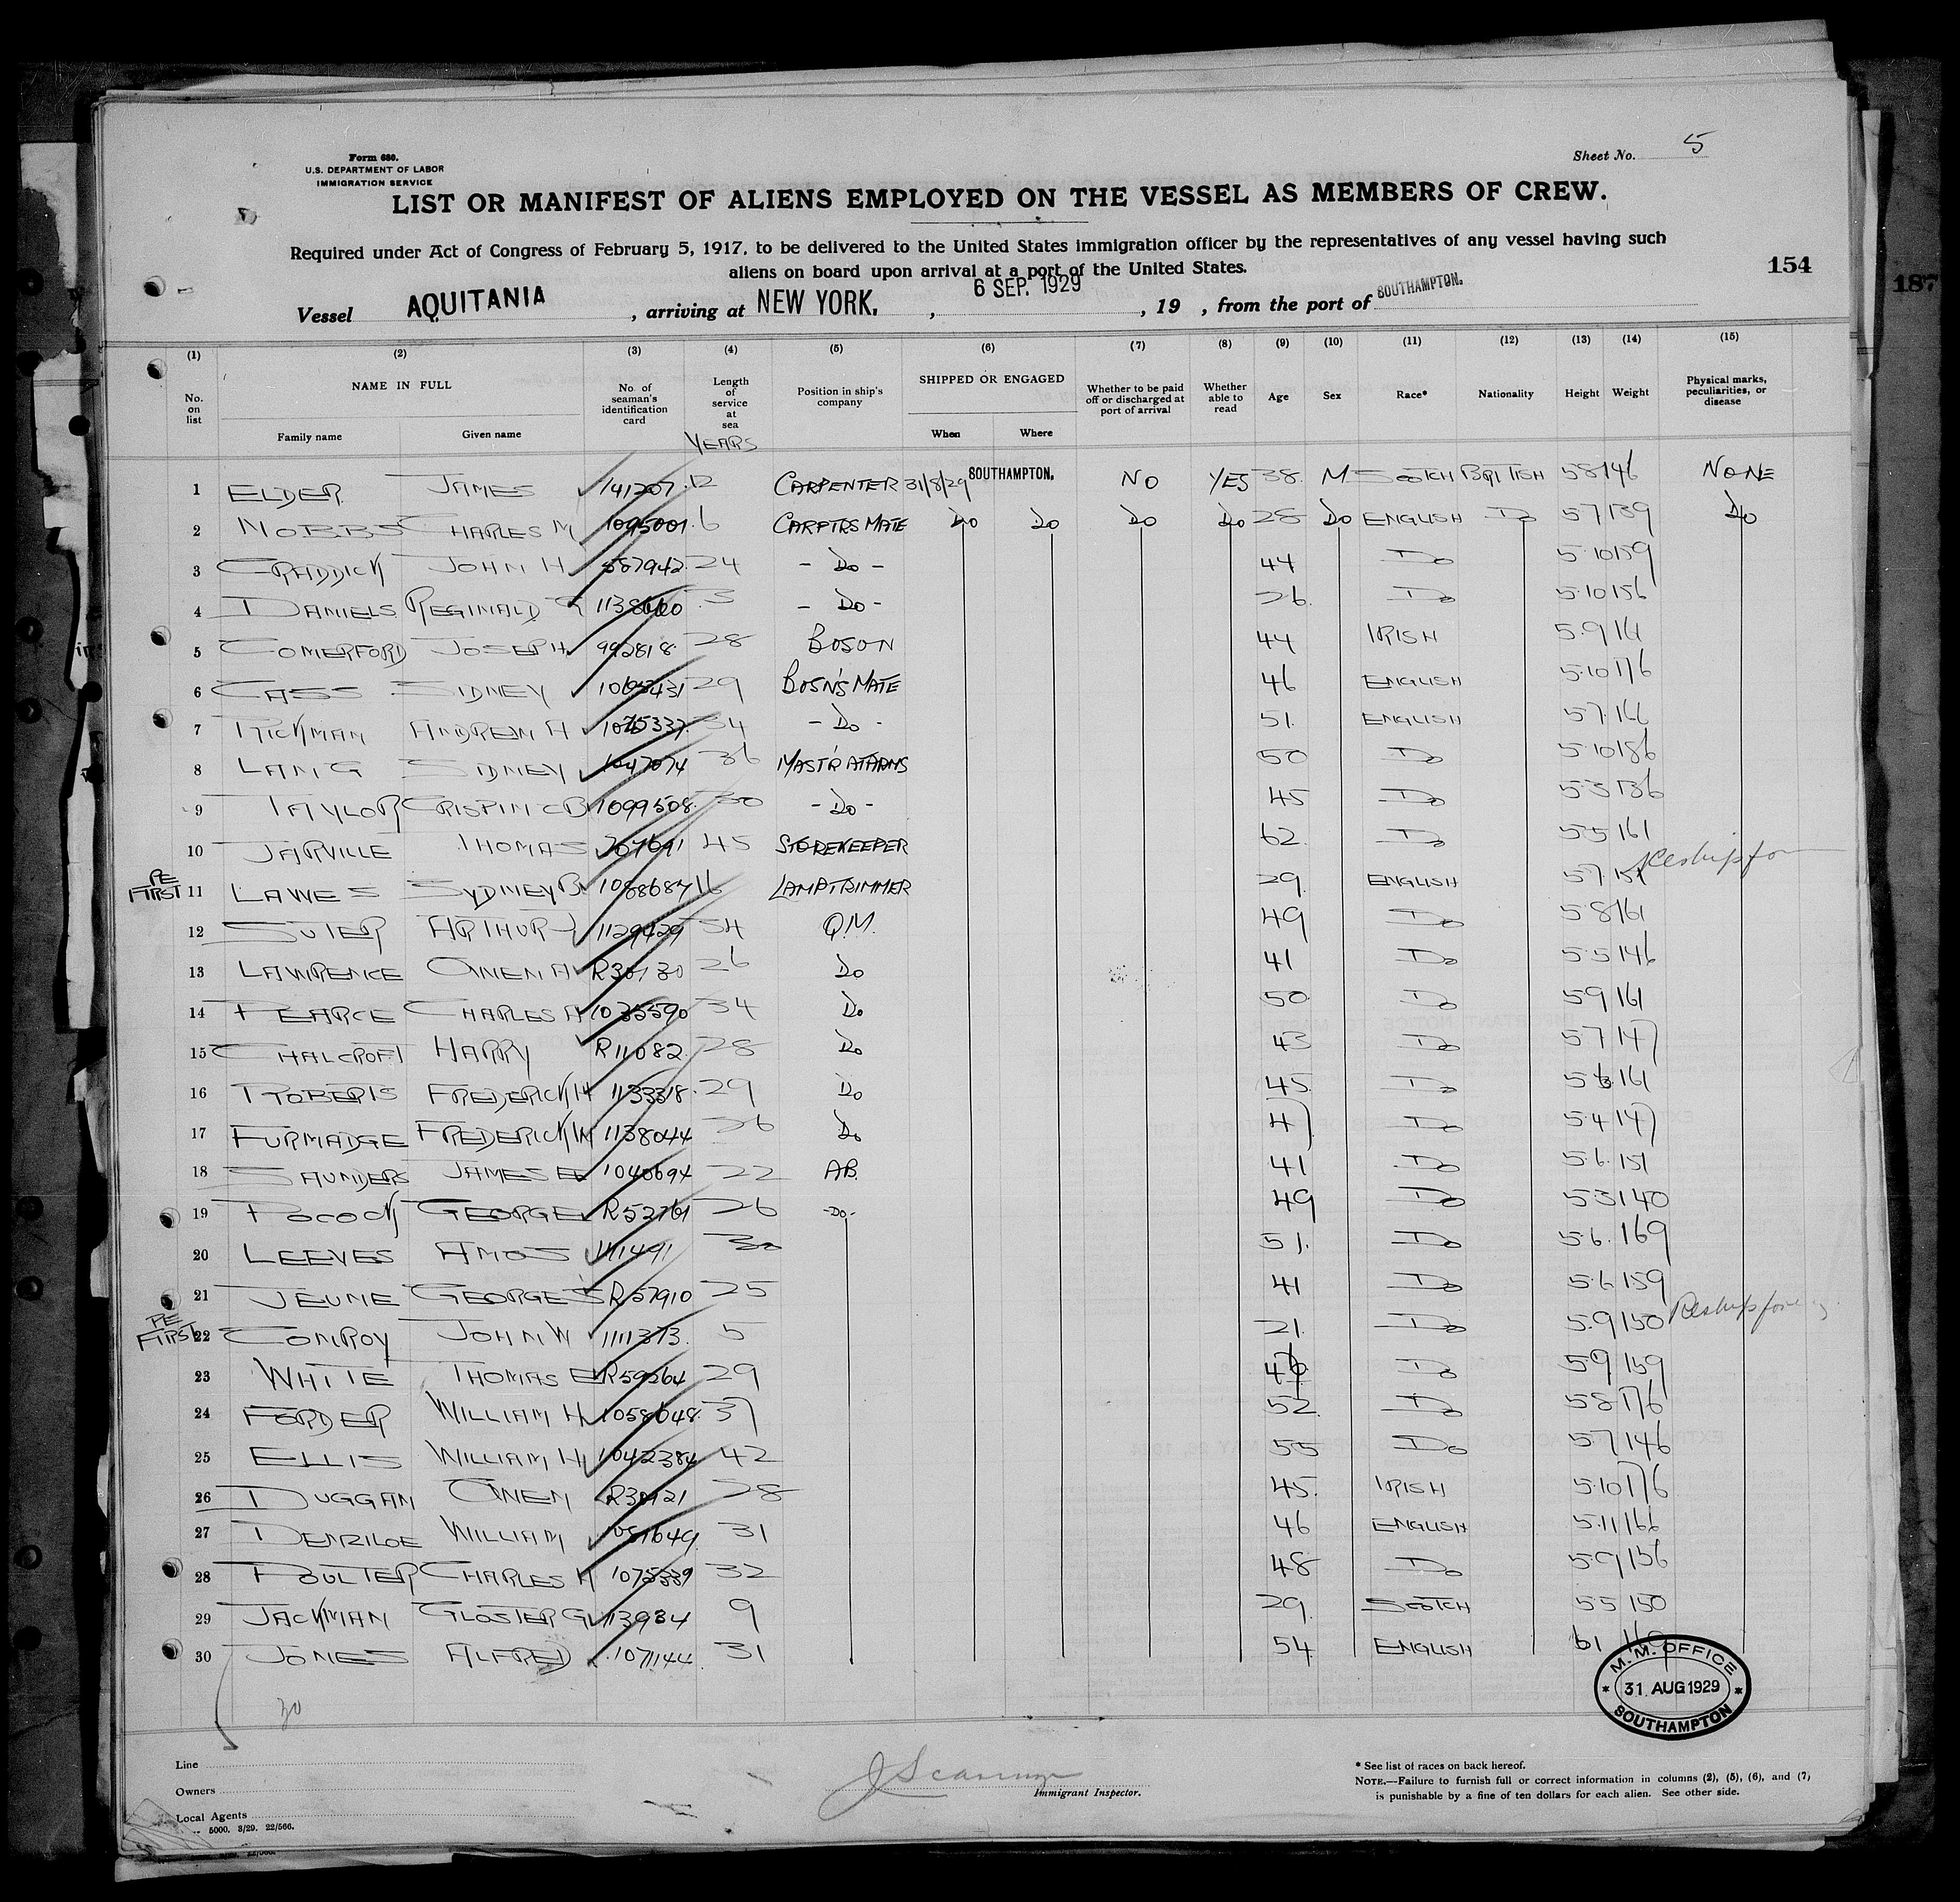 Form 680.
U.S. DEPARTMENT OF LABOR
IMMIGRATION SERVICE
Sheet No. 5
LIST OR MANIFEST OF ALIENS EMPLOYED ON THE VESSEL AS MEMBERS OF CREW.
Required under Act of Congress of February 5, 1917, to be delivered to the United States immigration officer by the representatives of any vessel having such
aliens on board upon arrival at a port of the United States.
154
187
Vessel AQUITANIA, arriving at NEW YORK, 6 SEP. 1929, 19 , from the port of SOUTHAMPTON.
(1) (2) (3) (4) (5) (6) (7) (8) (9) (10) (11) (12) (13) (14) (15)
No. on list NAME IN FULL Family name Given name No. of seaman's identification card Length of service at sea YEARS Position in ship's company SHIPPED OR ENGAGED When Where Whether to be paid off or discharged at port of arrival Whether able to read Age Sex Race* Nationality Height Weight Physical marks, peculiarities, or disease
1 ELDER JAMES 141207 12 CARPENTER 31/8/29 SOUTHAMPTON. NO YES 38 M SCOTCH BRITISH 5 8 146 NONE
2 NOBBS CHARLES M 1095001 6 CARPTRS MATE Do Do Do Do 28 Do ENGLISH Do 5 7 139 Do
3 JOHN H 24 - Do - 44 Do 5.10 159
4 DANIELS REGINALD - Do - 26 Do 5.10 156
5 COMERFORD JOSEPH 992818 28 BOSON 44 IRISH 5.9 161
6 CASS SIDNEY 29 BOSN'S MATE 46 ENGLISH 5.10 176
7 ANDREW A 1075337 34 - Do - 51 ENGLISH 5.7 166
8 LANG SIDNEY 1047074 36 MASTR AT ARMS 50 Do 5.10 186
9 TAYLOR CRISPIN C B 1099508 30 - Do - 45 Do 5.3 136
10 JARVILLE THOMAS 45 STOREKEEPER 62 Do 5.5 161
PE FIRST 11 LAWES SYDNEY B. 1088687 16 LAMPTRIMMER 29 ENGLISH 5 7 151 Reship for
12 SUTER ARTHUR J 1129429 34 Q.M. 49 Do 5.8 161
13 LAWRENCE OWEN A 26 Do 41 Do 5.5 146
14 PEARCE CHARLES A 1035590 34 Do 50 Do 5 9 161
15 CHALCROFT HARRY R11082 28 Do 43 Do 5 7 147
16 ROBERTS FREDERICK H 1133318 29 Do 45 Do 5 6 161
17 FURMADGE FREDERICK W 1138044 26 Do 47 Do 5.4 147
18 SAUNDERS JAMES E 1040694 22 AB. 41 Do 5.6. 151
19 POCOCK GEORGE R52761 26 -Do- 49 Do 5 3 140
20 LEEVES AMOS 30 51. Do 5.6. 169
21 JEUNE GEORGE S R57910 25 41 Do 5.6 159
PE FIRST 22 CONROY JOHN W 1111373 5 21. Do 5.9 150 Reship for
23 WHITE THOMAS E R59264 29 Do 5 9 159
24 FORDER WILLIAM H 1058048 37 52 Do 5 8 176
25 ELLIS WILLIAM H 1042384 42 55 Do 5.7 146
26 DUGGAN OWEN 28 45. IRISH 5.10 176
27 DENZILOE WILLIAM 31 46 ENGLISH 5.11 166
28 POULTER CHARLES A 32 48 Do 5.9 156
29 JACKMAN GLOSTER G 113934 9 29. SCOTCH 5 5 150
30 JONES ALFRED 1071144 31 54 ENGLISH 6 1
30
M. M. OFFICE
* 31 AUG 1929 *
SOUTHAMPTON
Line
Owners
Local Agents
5000. 3/29. 22/566.
Immigrant Inspector.
* See list of races on back hereof.
NOTE.—Failure to furnish full or correct information in columns (2), (5), (6), and (7)
is punishable by a fine of ten dollars for each alien. See other side.